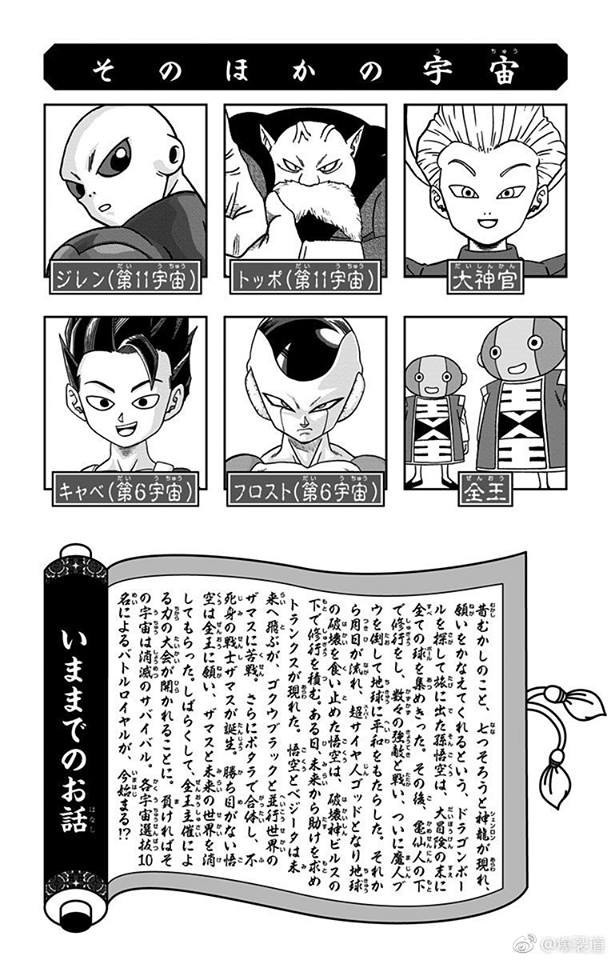 そのほかの宇宙
ジレン(第11宇宙)
トッポ(第11宇宙)
大神官
キャベ(第6宇宙)
フロスト(第6宇宙)
全王
いままでのお話
昔むかしのこと、七つそろうと神龍が現れ、
願いをかなえてくれるという、ドラゴンボー
ルを探して旅に出た孫悟空は、大冒険の末に
全ての球を集めきった。その後、亀仙人の下
で修行をし、数々の強敵と戦い、ついに魔人ブ
ウを倒して地球に平和をもたらした。それか
ら月日が流れ、超サイヤ人ゴッドとなり地球
の破壊を食い止めた悟空は、破壊神ビルスの
下で修行を積む。ある日、未来から助けを求め
トランクスが現れた。悟空とベジータは未
来へ飛ぶが、ゴクウブラックと並行世界の
ザマスに苦戦。さらにポタラで合体し、不
死身の戦士ザマスが誕生。勝ち目がない悟
空は全王に願い、ザマスと未来の世界を消
してもらった。しばらくして、全王主催によ
る力の大会が開かれることに。負ければそ
の宇宙は消滅のサバイバル。各宇宙選抜10
名によるバトルロイヤルが、今始まる!?
@爆裂道